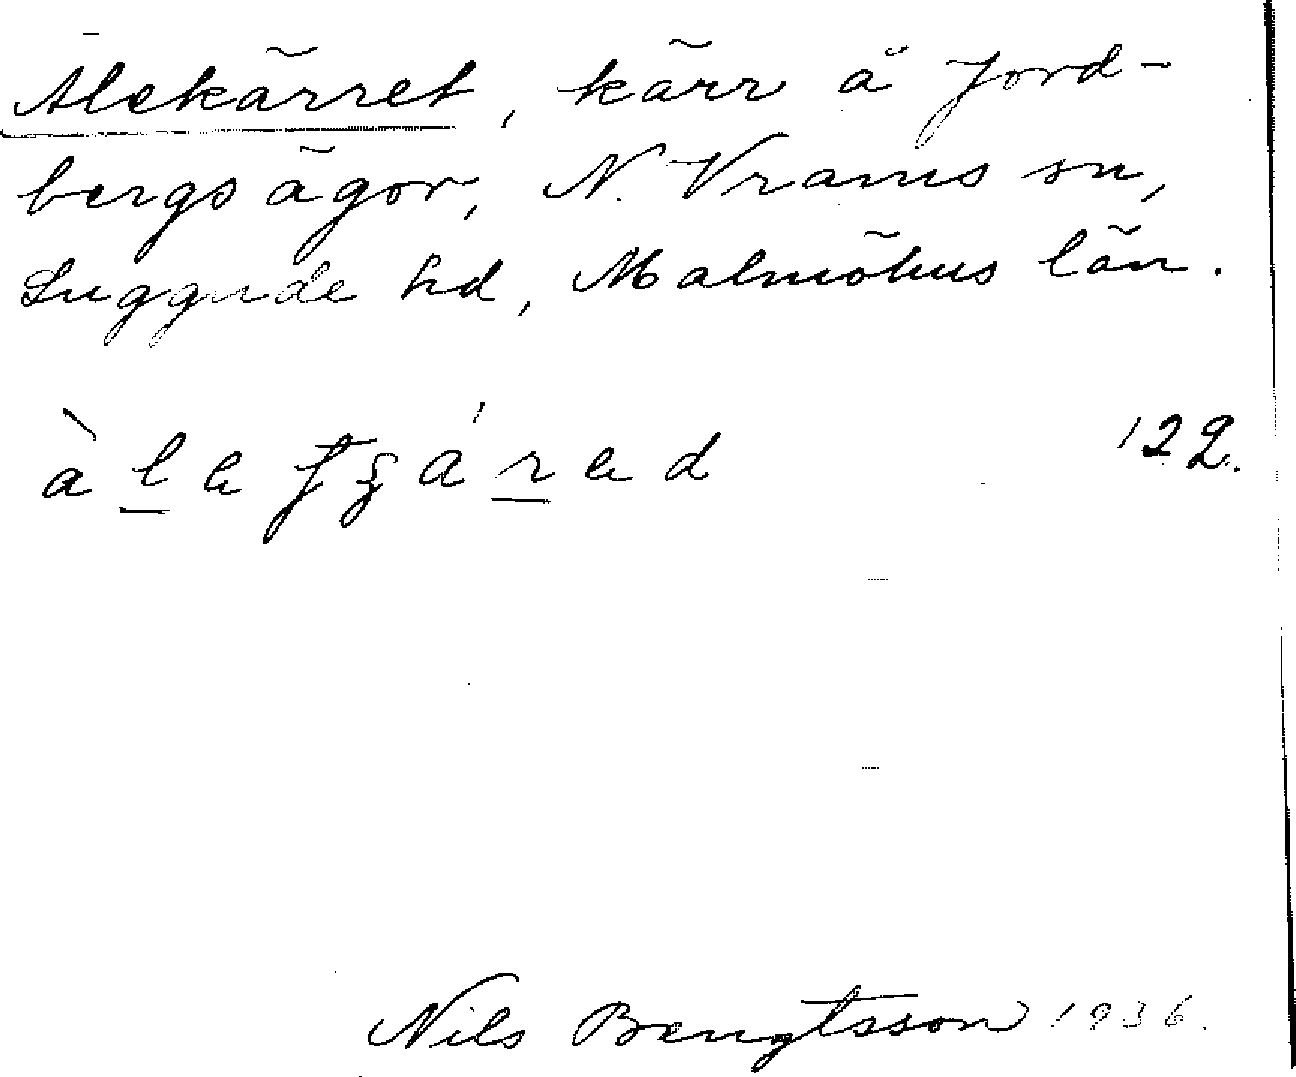 Alekärret, kärr å Jord-
bergs ägor, N. Vrams sn,
Luggude hd, Malmöhus län.
122.
Nils Bengtsson 1936.